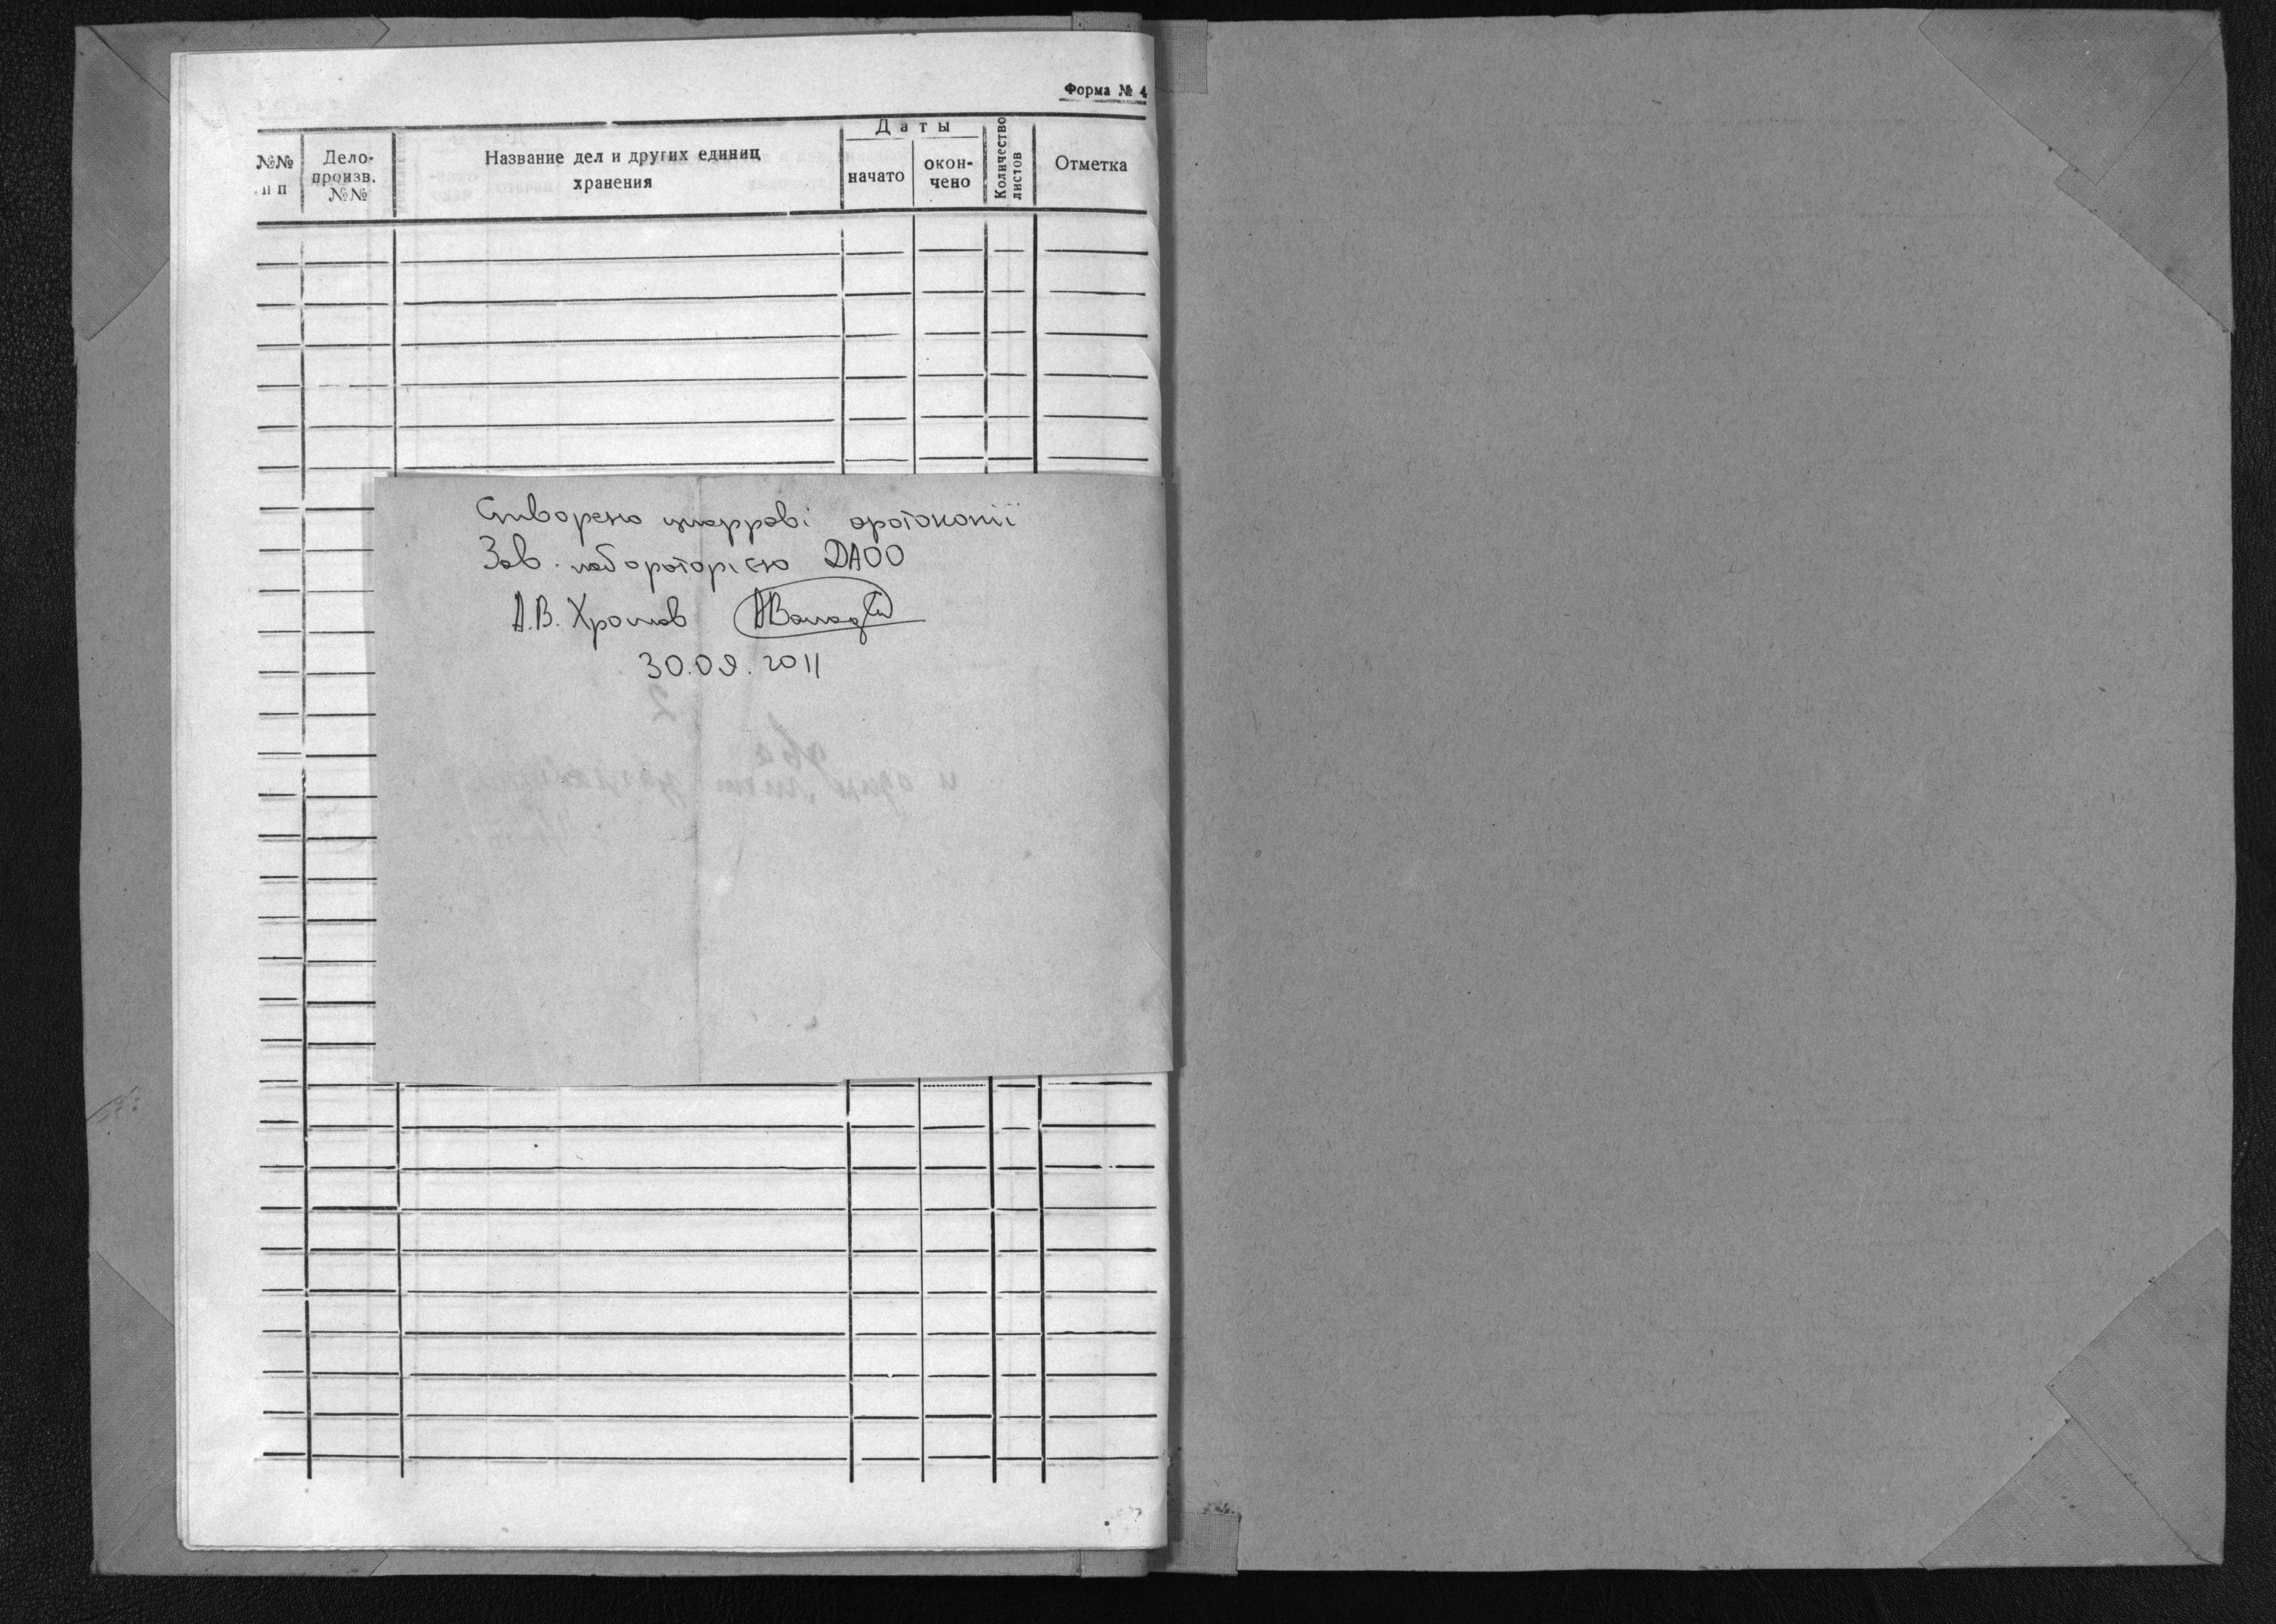 Форма № 4
№№ п п
Дело- произв. №№
Название дел и других единиц хранения
Даты
начато
окон- чено
Количество листов
Отметка
Створено цифрові фотокопії
Зав. лабораторією ДАОО
А.В. Хромов
30.09.2011